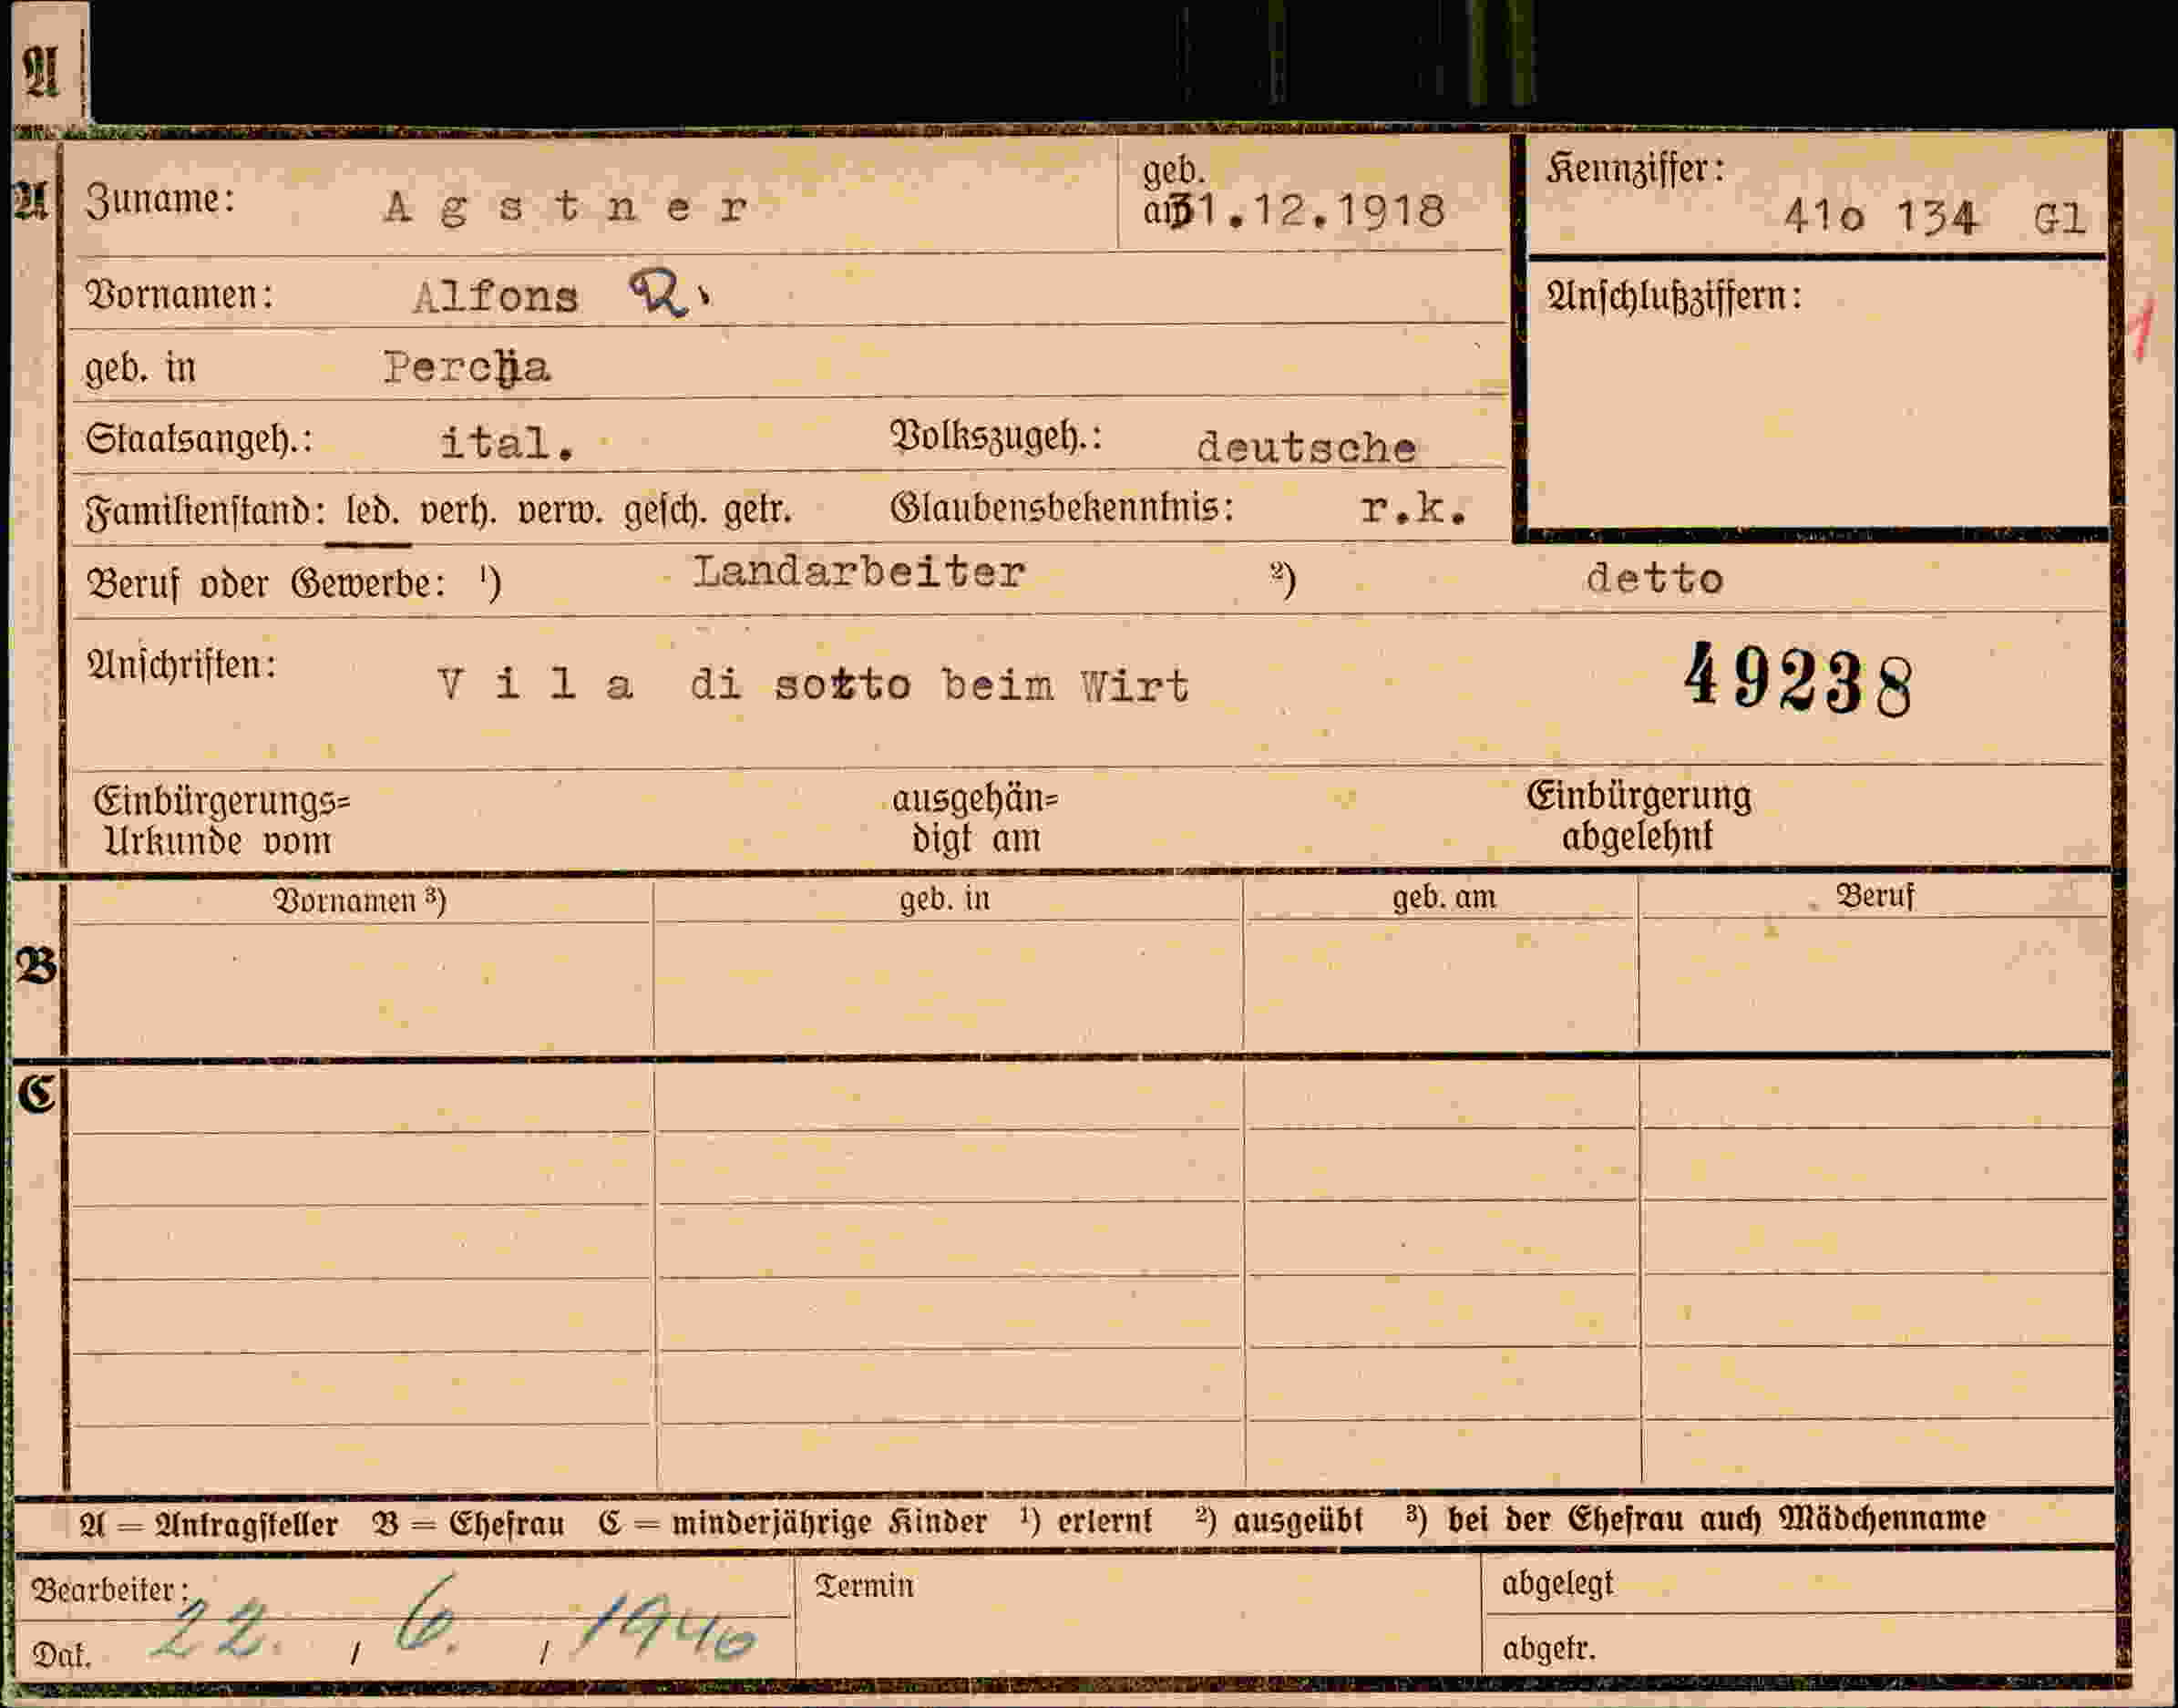 A
A
Zuname: Agstner geb. am 31.12.1918 Kennziffer: 41o 134 Gl
Vornamen: Alfons R. Anschlußziffern:
1
geb. in Percha
Staatsangeh.: ital. Volkszugeh.: deutsche
Familienstand: led. verh. verw. gesch. getr. Glaubensbekenntnis: r.k.
Beruf oder Gewerbe: ¹) Landarbeiter ²) detto
Anschriften: Vila di sotto beim Wirt 49238
Einbürgerungs= ausgehän= Einbürgerung
Urkunde vom digt am abgelehnt
Vornamen ³) geb. in geb. am Beruf
B
C
A = Antragsteller B = Ehefrau C = minderjährige Kinder ¹) erlernt ²) ausgeübt ³) bei der Ehefrau auch Mädchenname
Bearbeiter: Termin abgelegt
Dat. 22. / 6. / 1940 abgetr.